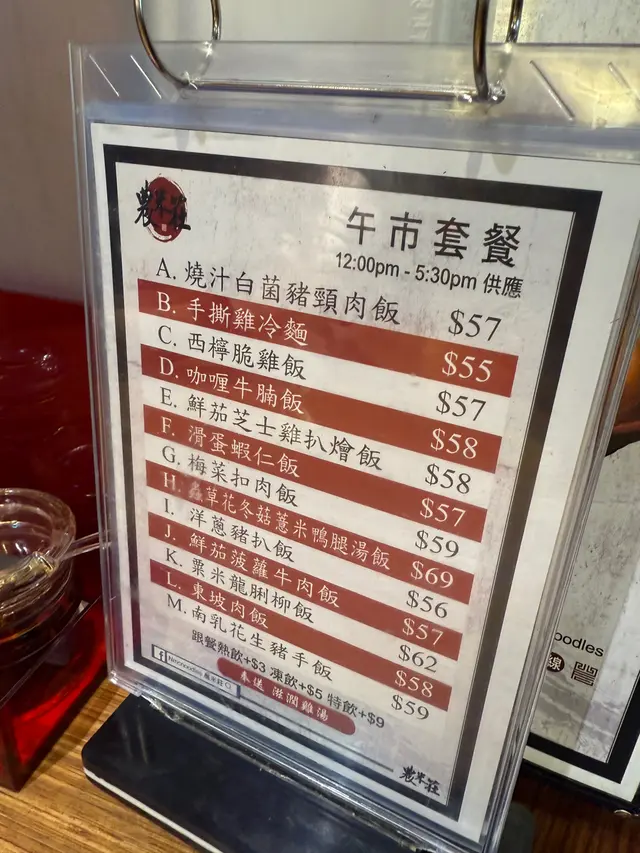 農米莊
午市套餐
12:00pm - 5:30pm 供應
A. 燒汁白菌豬頸肉飯 $57
B. 手撕雞冷麵 $55
C. 西檸脆雞飯 $57
D. 咖喱牛腩飯 $58
E. 鮮茄芝士雞扒燴飯 $58
F. 滑蛋蝦仁飯 $57
G. 梅菜扣肉飯 $59
H. 蟲草花冬菇薏米鴨腿湯飯 $69
I. 洋蔥豬扒飯 $56
J. 鮮茄菠蘿牛肉飯 $57
K. 粟米龍脷柳飯 $62
L. 東坡肉飯 $58
M. 南乳花生豬手飯 $59
跟餐熱飲+$3 凍飲+$5 特飲+$9
奉送 滋潤雞湯
農米莊
oodles
線